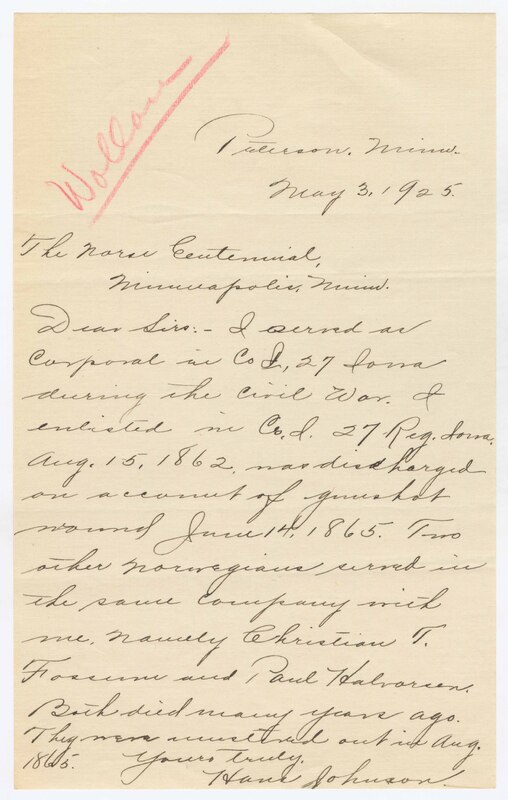 Wollan
Peterson, Minn.
May 3, 1925.
The Norse Centennial,
Minneapolis, Minn.
Dear Sirs:- I served as
Corporal in Co I, 27 Iowa
during the Civil War. I
enlisted in Co. I. 27 Reg. Iowa,
Aug. 15, 1862, was discharged
on account of gunshot
wound June 14, 1865. Two
other Norwegians served in
the same company with
me, namely Christian T.
Fossum and Paul Halvorsen.
Both died many years ago.
They were mustered out in Aug.
1865. Yours truly,
Hans Johnson.